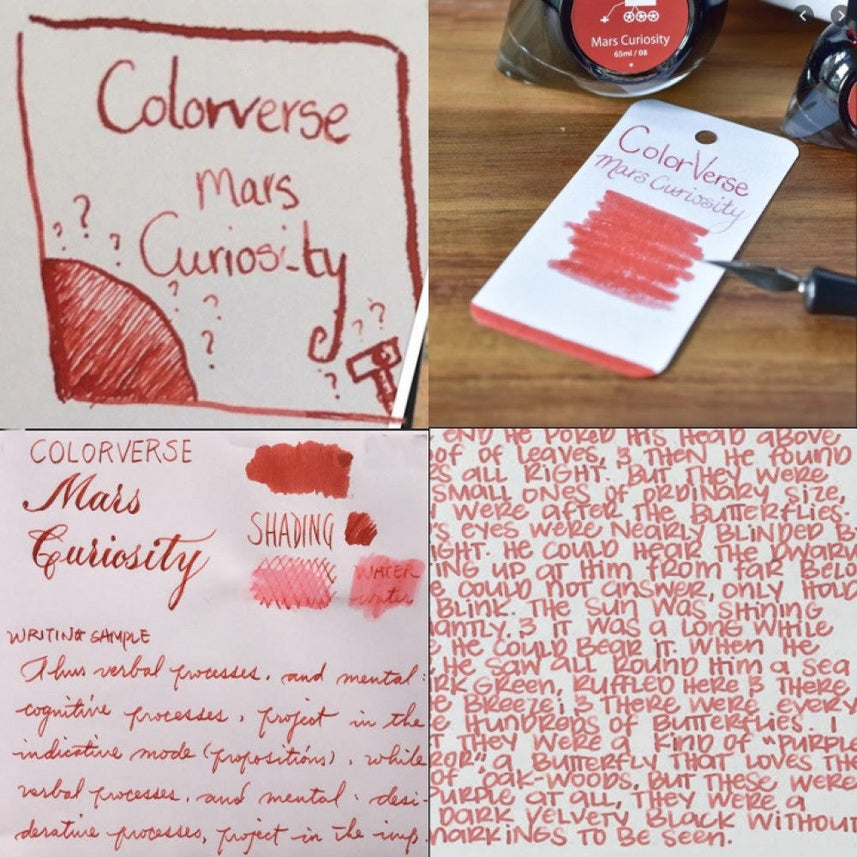 Colorverse
Mars
Curiosity
? ? ?
? ? ?
? ?
?
Mars Curiosity
65ml / 08
ColorVerse
Mars Curiosity
COLORVERSE
Mars
Curiosity
SHADING
WATER
water
WRITING SAMPLE
Thus verbal processes, and mental:
cognitive processes, project in the
indicative mode (propositions), while
verbal processes, and mental: desi-
derative processes, project in the imp.
END HE POKED HIS HEAD ABOVE
OF OF LEAVES, & THEN HE FOUND
S ALL RIGHT. BUT THEY WERE
SMALL ONES OF ORDINARY SIZE,
Y WERE AFTER THE BUTTERFLIES.
S EYES WERE NEARLY BLINDED B
IGHT. HE COULD HEAR THE DWARV
ING UP AT HIM FROM FAR BELO
E COULD NOT ANSWER, ONLY HOLD
BLINK. THE SUN WAS SHINING
ANTLY, & IT WAS A LONG WHILE
E HE COULD BEAR IT. WHEN HE
, HE SAW ALL ROUND HIM A SEA
RK GREEN, RUFFLED HERE & THERE
E BREEZE; & THERE WERE EVERY
E HUNDREDS OF BUTTERFLIES. I
T THEY WERE A KIND OF "PURPLE
ROR", A BUTTERFLY THAT LOVES THE
OF OAK-WOODS, BUT THESE WERE
PURPLE AT ALL, THEY WERE A
DARK VELVETY BLACK WITHOUT
MARKINGS TO BE SEEN.